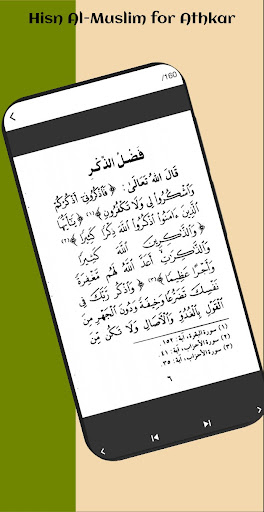 Hisn Al-Muslim for Athkar
/160
فَضْلُ الذِّكْرِ
قَالَ اللهُ تَعَالَى: ﴿ فَاذْكُرُونِي أَذْكُرْكُمْ
وَاشْكُرُوا لِي وَلَا تَكْفُرُونِ ﴾(١) ﴿ يَا أَيُّهَا
الَّذِينَ ءَامَنُوا اذْكُرُوا اللَّهَ ذِكْرًا كَثِيرًا ﴾(٢)
﴿ وَالذَّاكِرِينَ اللَّهَ كَثِيرًا
وَالذَّاكِرَاتِ أَعَدَّ اللَّهُ لَهُم مَّغْفِرَةً
وَأَجْرًا عَظِيمًا ﴾(٣) ﴿ وَاذْكُر رَّبَّكَ فِي
نَفْسِكَ تَضَرُّعًا وَخِيفَةً وَدُونَ الْجَهْرِ مِنَ
الْقَوْلِ بِالْغُدُوِّ وَالْآصَالِ وَلَا تَكُن مِّنَ
(١) سورة البقرة، آية: ١٥٢.
(٢) سورة الأحزاب، آية: ٤١.
(٣) سورة الأحزاب، آية: ٣٥.
٦